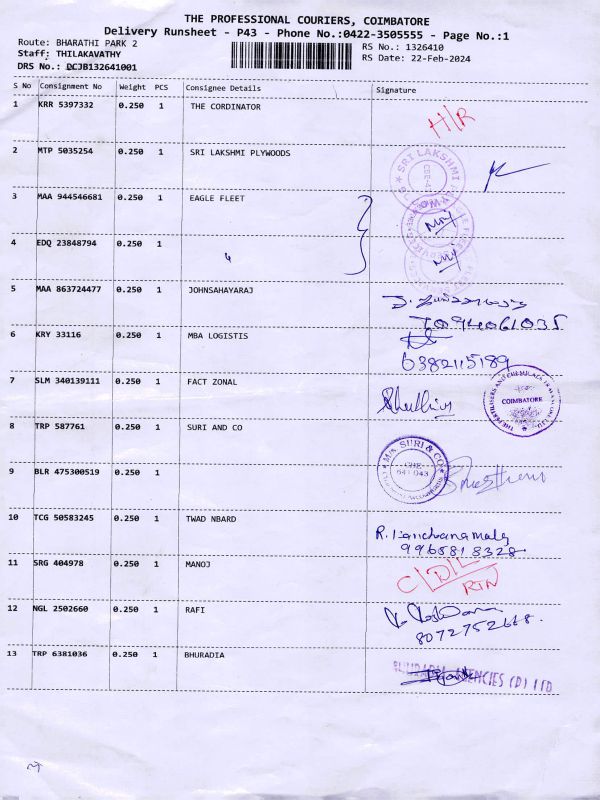 THE PROFESSIONAL COURIERS, COIMBATORE
Delivery Runsheet - P43 - Phone No.:0422-3505555 - Page No.:1
Route: BHARATHI PARK 2
RS No.: 1326410
Staff: THILAKAVATHY
RS Date: 22-Feb-2024
DRS No.: DCJB132641001
S No Consignment No Weight PCS Consignee Details Signature
1 KRR 5397332 0.250 1 THE CORDINATOR
H/R
2 MTP 5035254 0.250 1 SRI LAKSHMI PLYWOODS
SRI LAKSHMI
3 MAA 944546681 0.250 1 EAGLE FLEET
4 EDQ 23848794 0.250 1
5 MAA 863724477 0.250 1 JOHNSAHAYARAJ
6 KRY 33116 0.250 1 MBA LOGISTIS
6382115189
7 SLM 340139111 0.250 1 FACT ZONAL
COIMBATORE
8 TRP 587761 0.250 1 SURI AND CO
M/s. SURI & CO
9 BLR 475300519 0.250 1
10 TCG 50583245 0.250 1 TWAD NBARD
R. Kanchanamala
9965818328
11 SRG 404978 0.250 1 MANOJ
C/D/L
RTN
12 NGL 2502660 0.250 1 RAFI
13 TRP 6381036 0.250 1 BHURADIA
AGENCIES (P) LTD